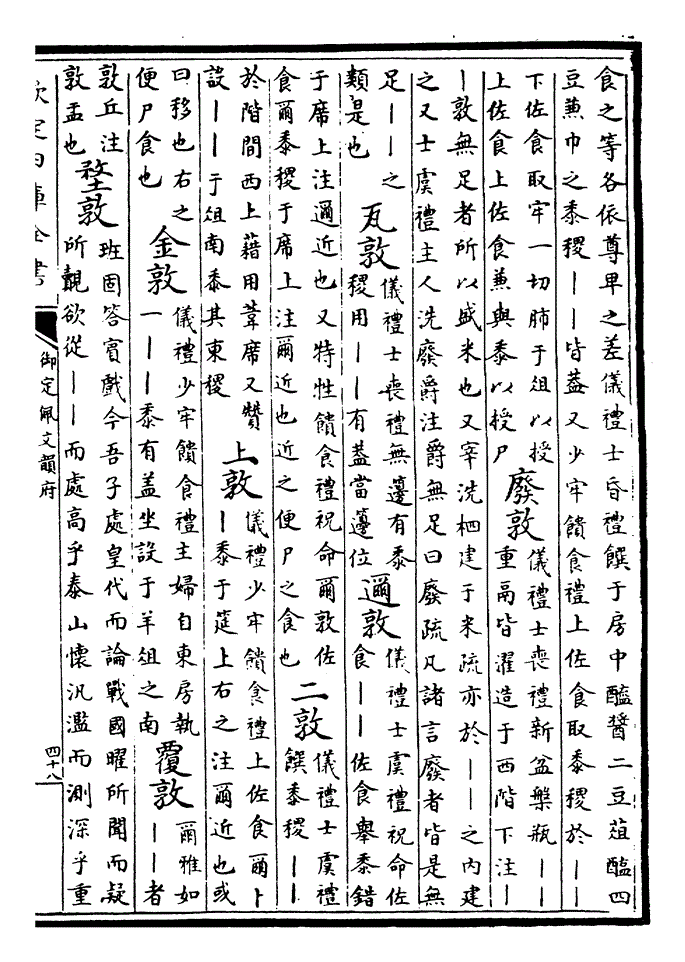 食之等各依尊卑之差儀禮士昏禮饌于房中醯醬二豆菹醢四
豆兼巾之黍稷｜｜皆蓋又少牢饋食禮上佐食取黍稷於｜｜
下佐食取牢一切肺于俎以授
上佐食上佐食兼與黍以授尸
廢敦
儀禮士喪禮新盆槃瓶｜｜
重鬲皆濯造于西階下注｜
｜敦無足者所以盛米也又宰洗柶建于米疏亦於｜｜之内建
之又士虞禮主人洗廢爵注爵無足曰廢疏凡諸言廢者皆是無
足｜｜之
類是也
瓦敦
儀禮士喪禮無籩有黍
稷用｜｜有蓋當籩位
邇敦
儀禮士虞禮祝命佐
食｜｜佐食舉黍錯
于席上注邇近也又特牲饋食禮祝命爾敦佐
食爾黍稷于席上注爾近也近之便尸之食也
二敦
儀禮士虞禮
饌黍稷｜｜
於階間西上藉用葦席又贊
設｜｜于俎南黍其東稷
上敦
儀禮少牢饋食禮上佐食爾卜
｜黍于筵上右之注爾近也或
曰移也右之
便尸食也
金敦
儀禮少牢饋食禮主婦自東房執
一｜｜黍有蓋坐設于羊俎之南
覆敦
爾雅如
｜｜者
敦丘注
敦盂也
堥敦
班固答賓戲今吾子處皇代而論戰國曜所聞而疑
所覿欲從｜｜而處高乎泰山懷汎濫而測深乎重
欽定四庫全書
御定佩文韻府
四十八